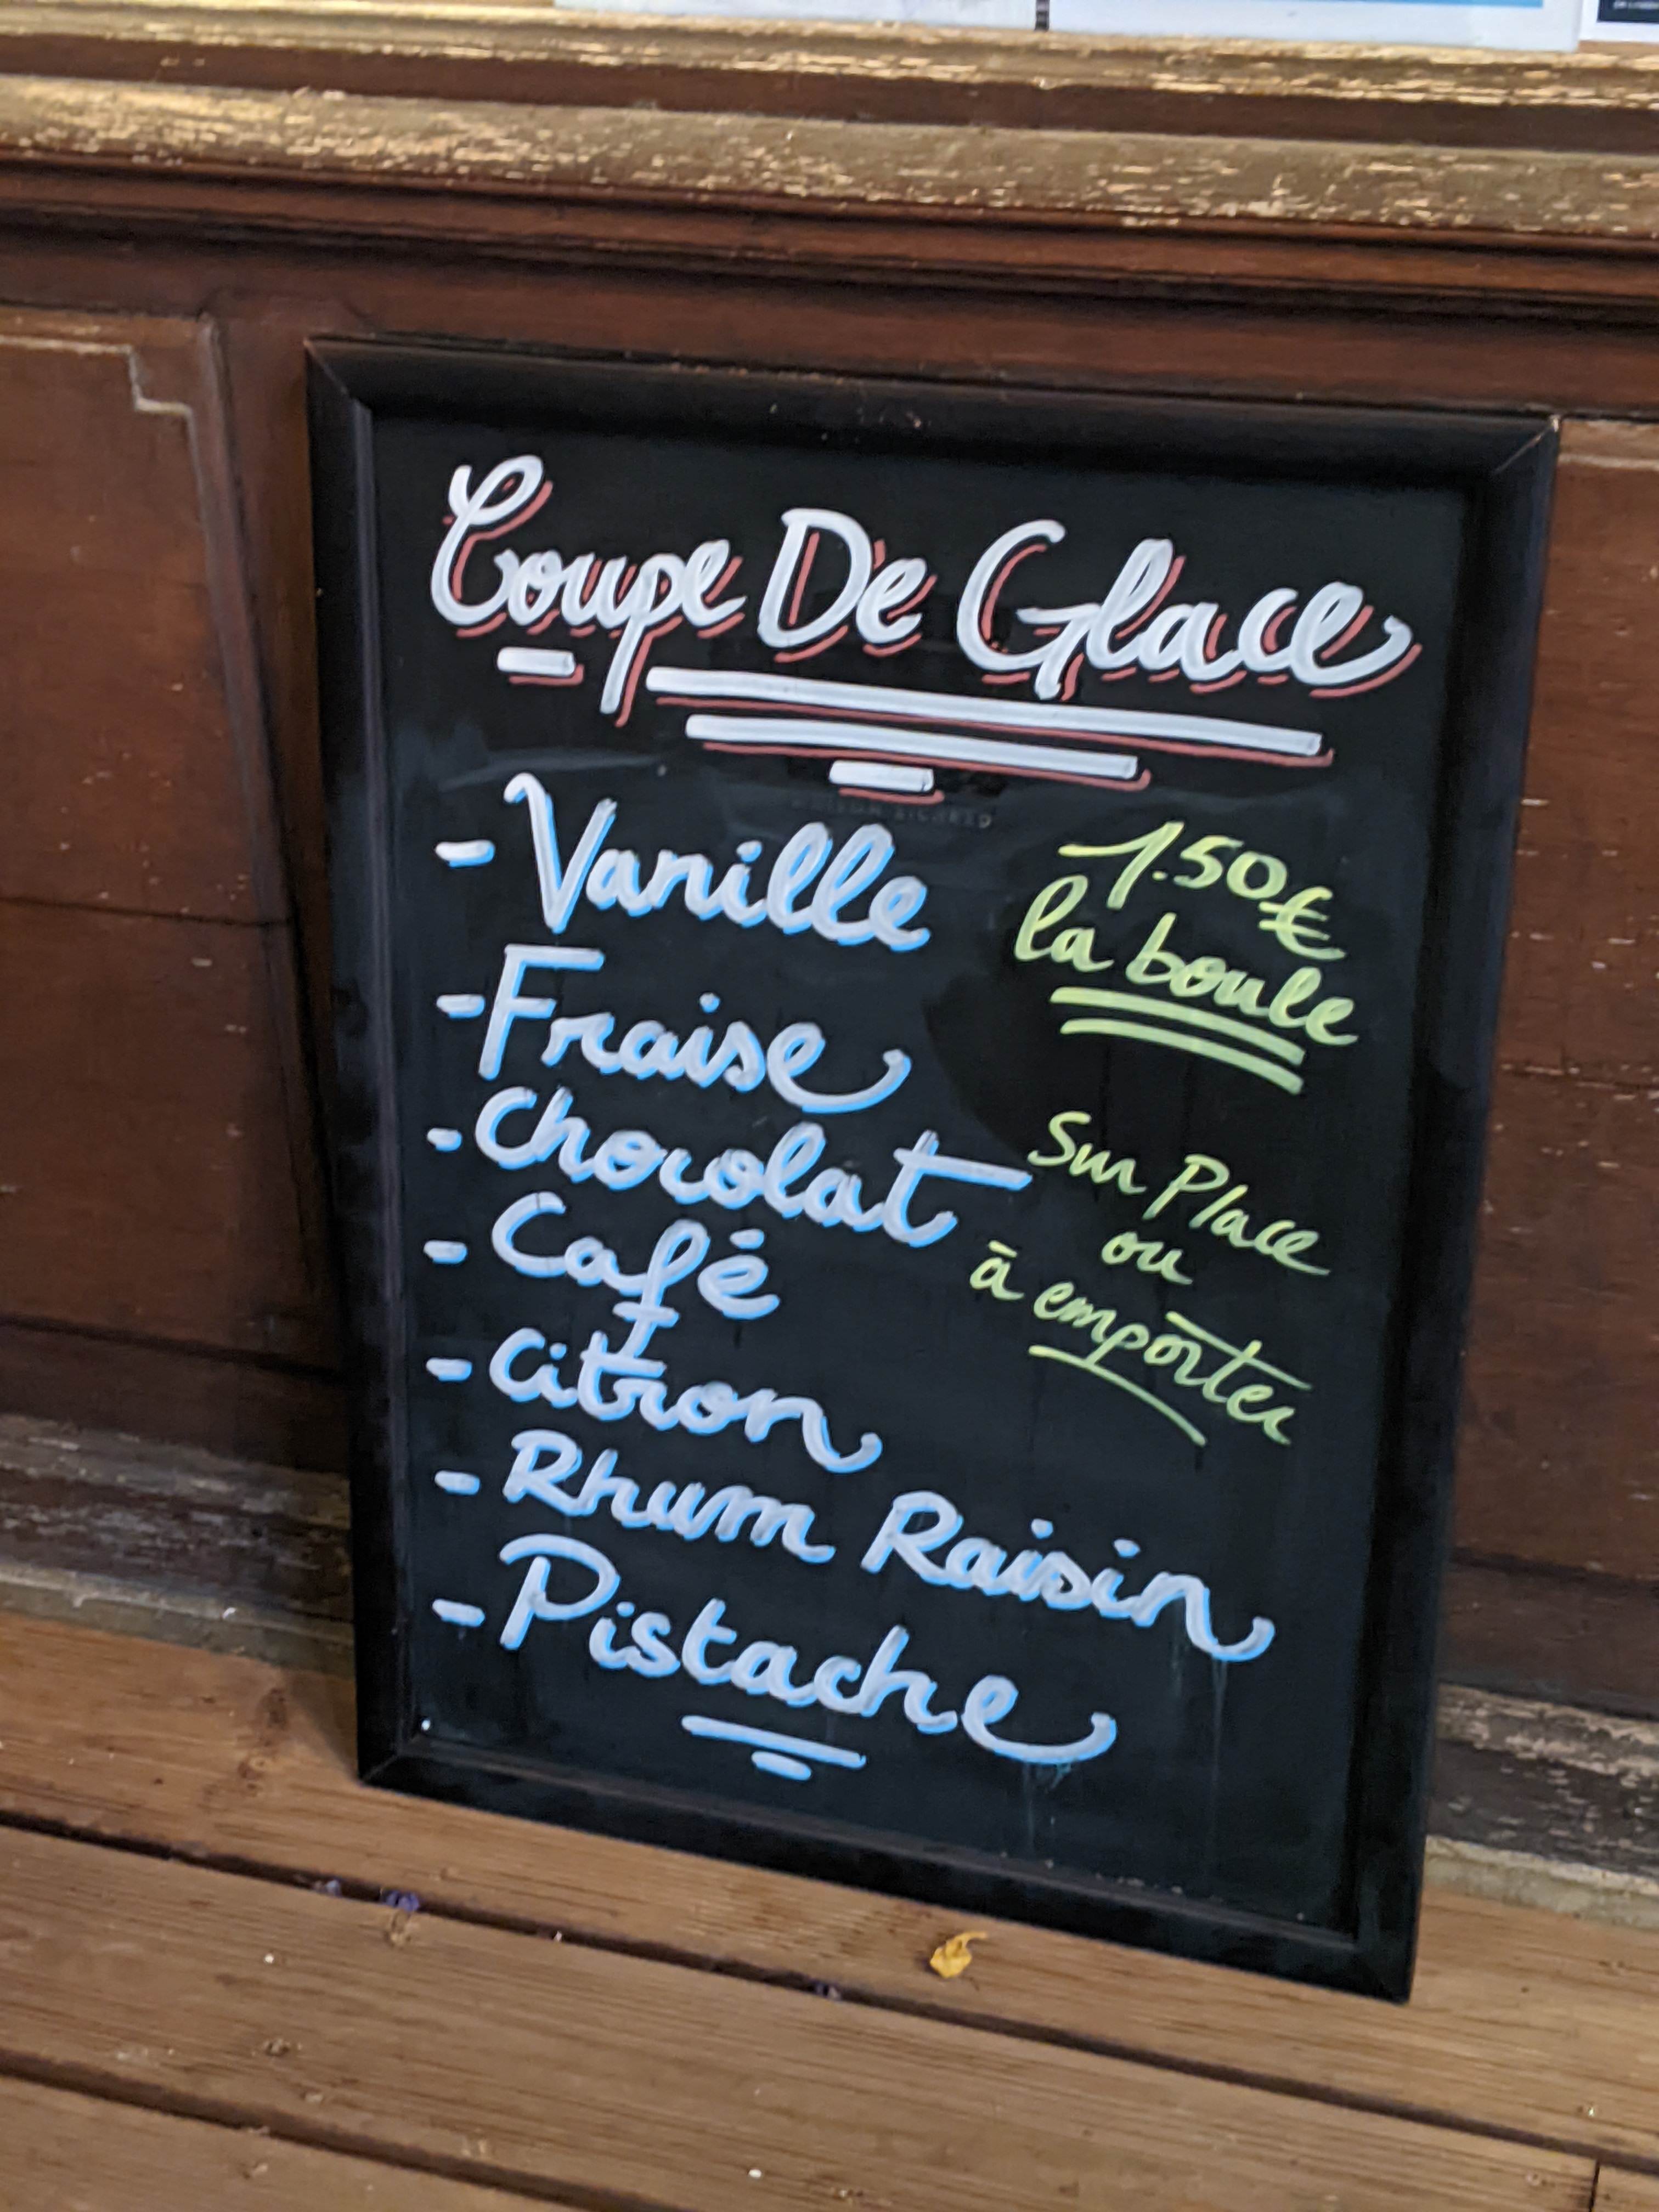 Coupe De Glace
- Vanille
- Fraise
- Chocolat
- Café
- Citron
- Rhum Raisin
- Pistache
1.50€
la boule
Sur Place
ou
à emporter